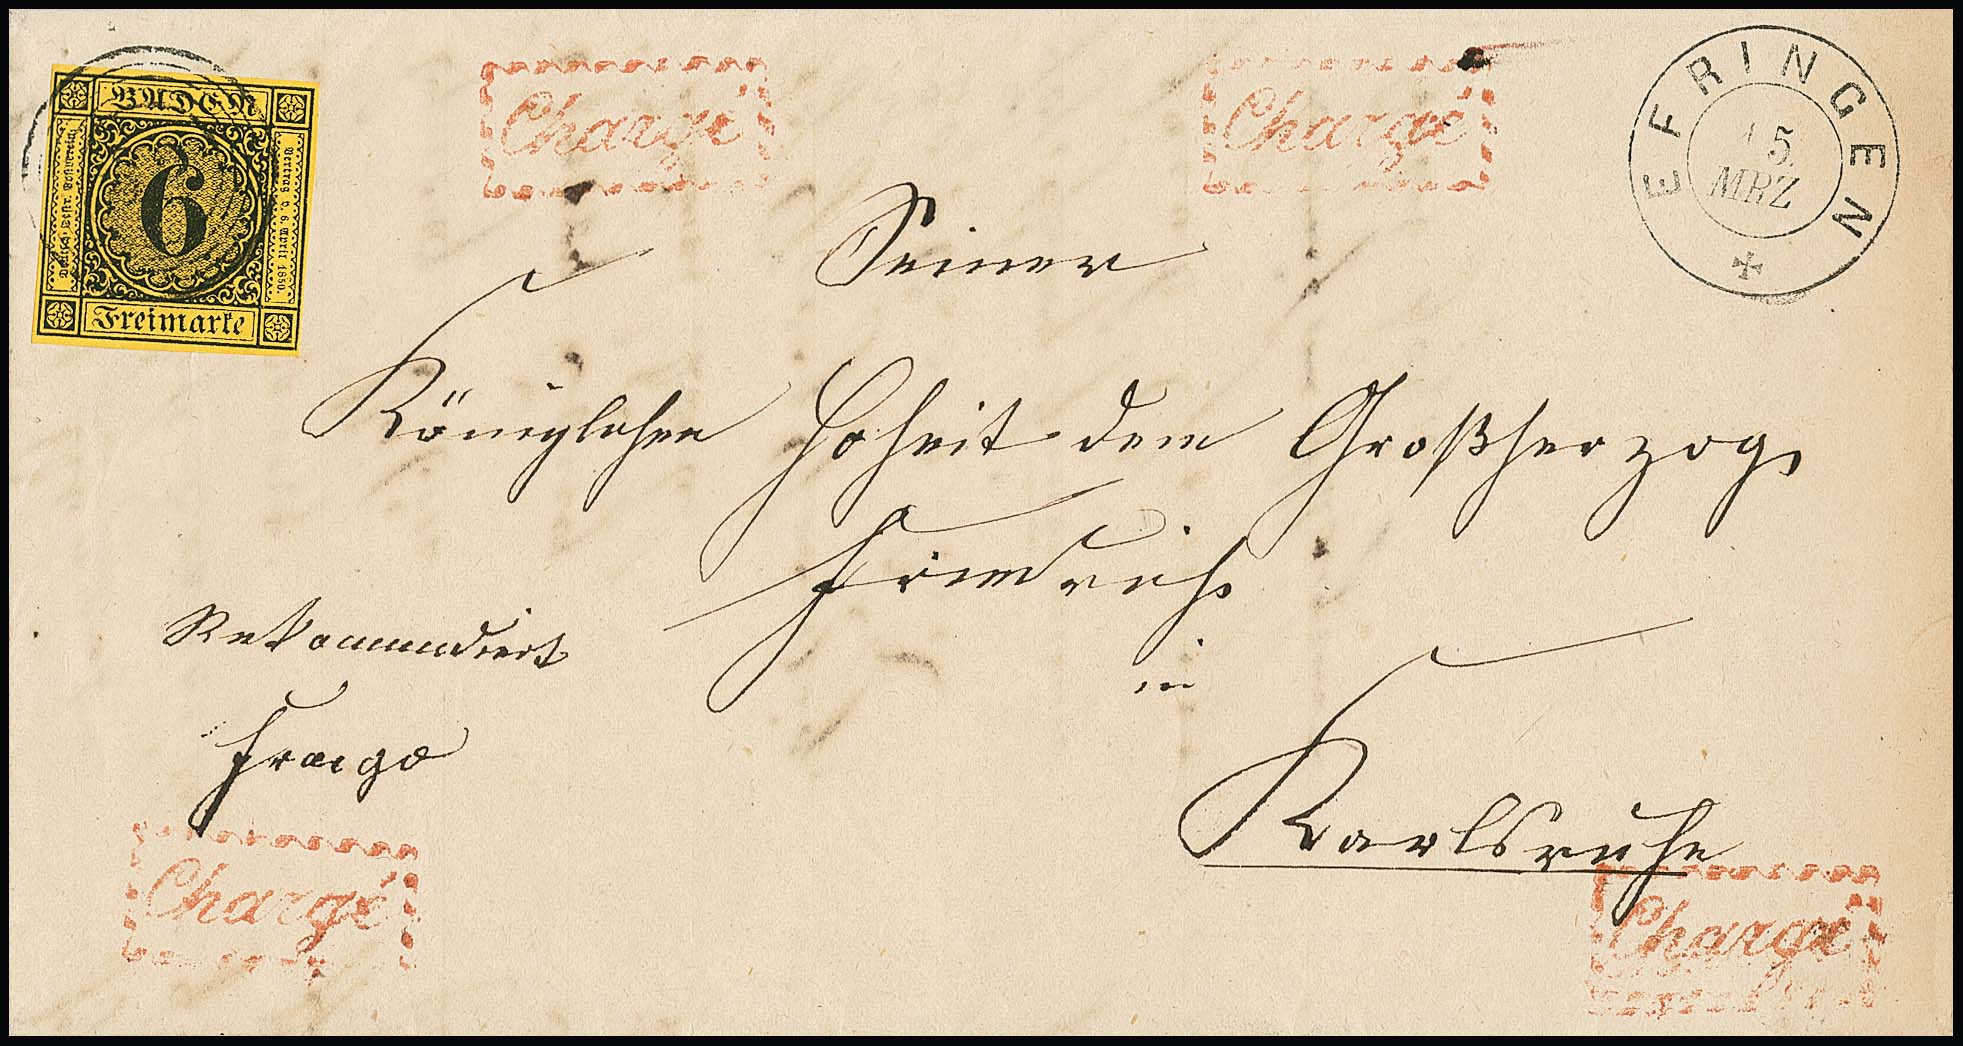 BADEN
6
Deutsch-Östr. Postverein
Vertrag v. 6. April 1850.
Freimarke
Chargé
Chargé
EFRINGEN
15
MRZ
Seiner
Königlichen Hoheit dem Großherzog
Friedrich
in
Karlsruhe
Rekommendiert
Franco
Chargé
Chargé